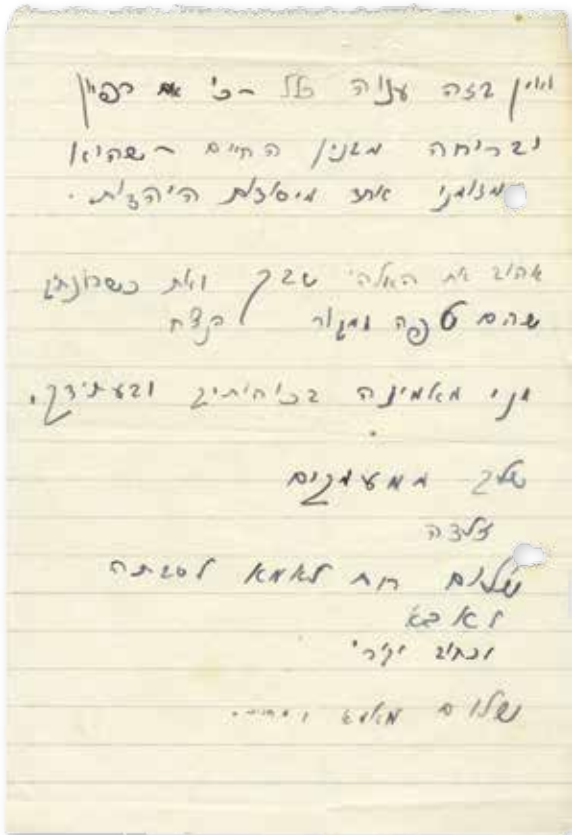 ואין בזה ענוה כלל – כי אם רפיון
ובריחה מבנין החיים – שהיא
אחד מיסודות היהדות.
אהוב את האלהי שבך ואת כשרונותיך
שהם טפה ממקור הנצח
אני מאמינה בכוחותיך ובעתידך.
שלך ממעמקים
זלדה
שלום רות לאמא לסבתה
לאבא
וכתוב יקירי
שלום מאמא